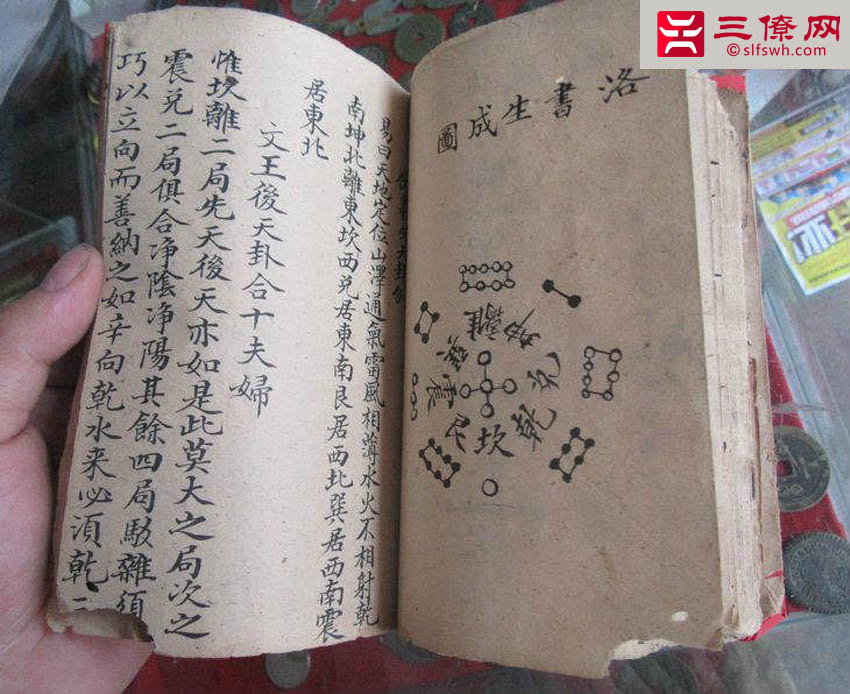 三僚网
©slfswh.com
洛書生成圖
離
坤
兌
乾
坎
艮
震
巽
先天卦
易曰天地定位山澤通氣雷風相薄水火不相射乾
南坤北離東坎西兌居東南艮居西北巽居西南震
居東北
文王後天卦合十夫婦
惟坎離二局先天後天亦如是此莫大之局次之
震兌二局俱合净陰净陽其餘四局駁雜須
巧以立向而善納之如辛向乾水来必須乾